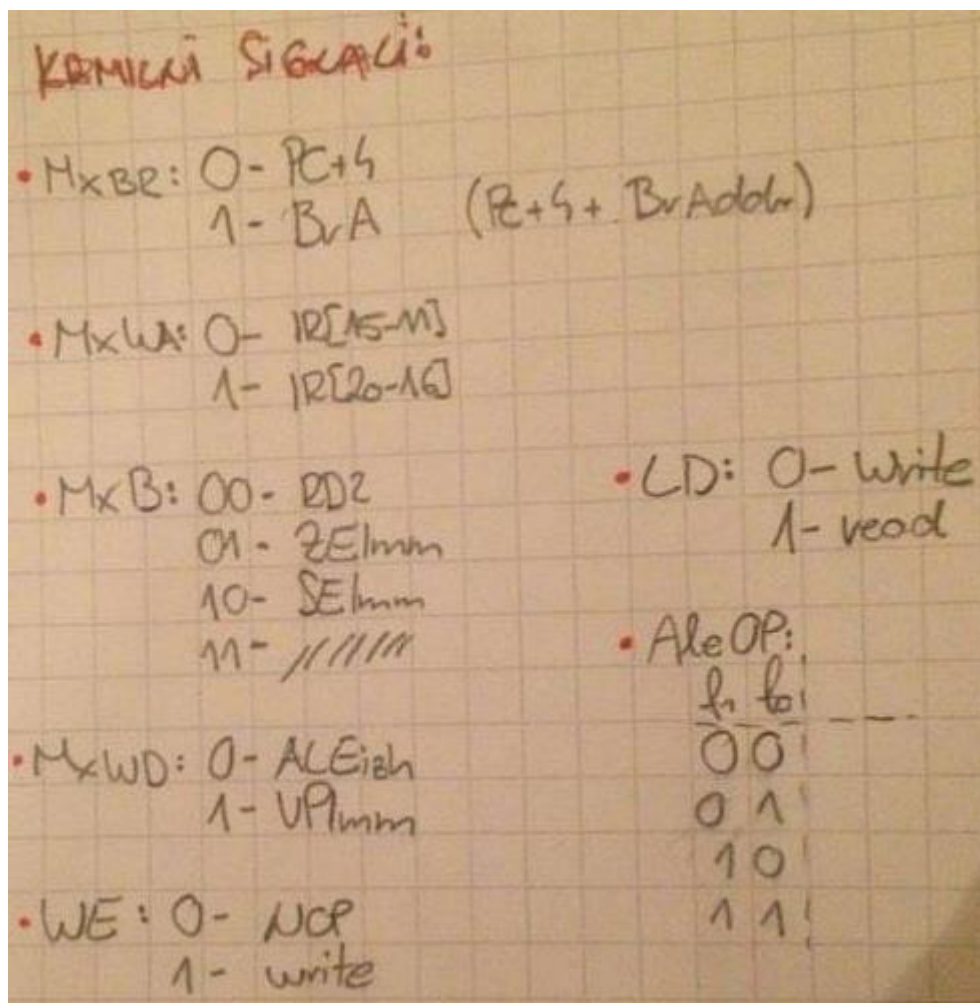 KRMILNI SIGNALI:
• MxBR: 0 - PC+4
1 - BrA (PC+4 + BrAddr)
• MxWA: 0 - IR[15-11]
1 - IR[20-16]
• MxB: 00 - RD2
01 - ZEImm
10 - SEImm
11 - //////
• MxWD: 0 - ALEizh
1 - UPImm
• WE: 0 - NOP
1 - write
• LD: 0 - Write
1 - read
• AleOP:
f1 f0
0 0
0 1
1 0
1 1